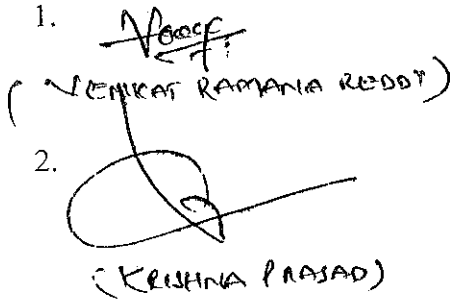 1.
(VENKAT RAMANA REDDY)
2.
(KRISHNA PRASAD)